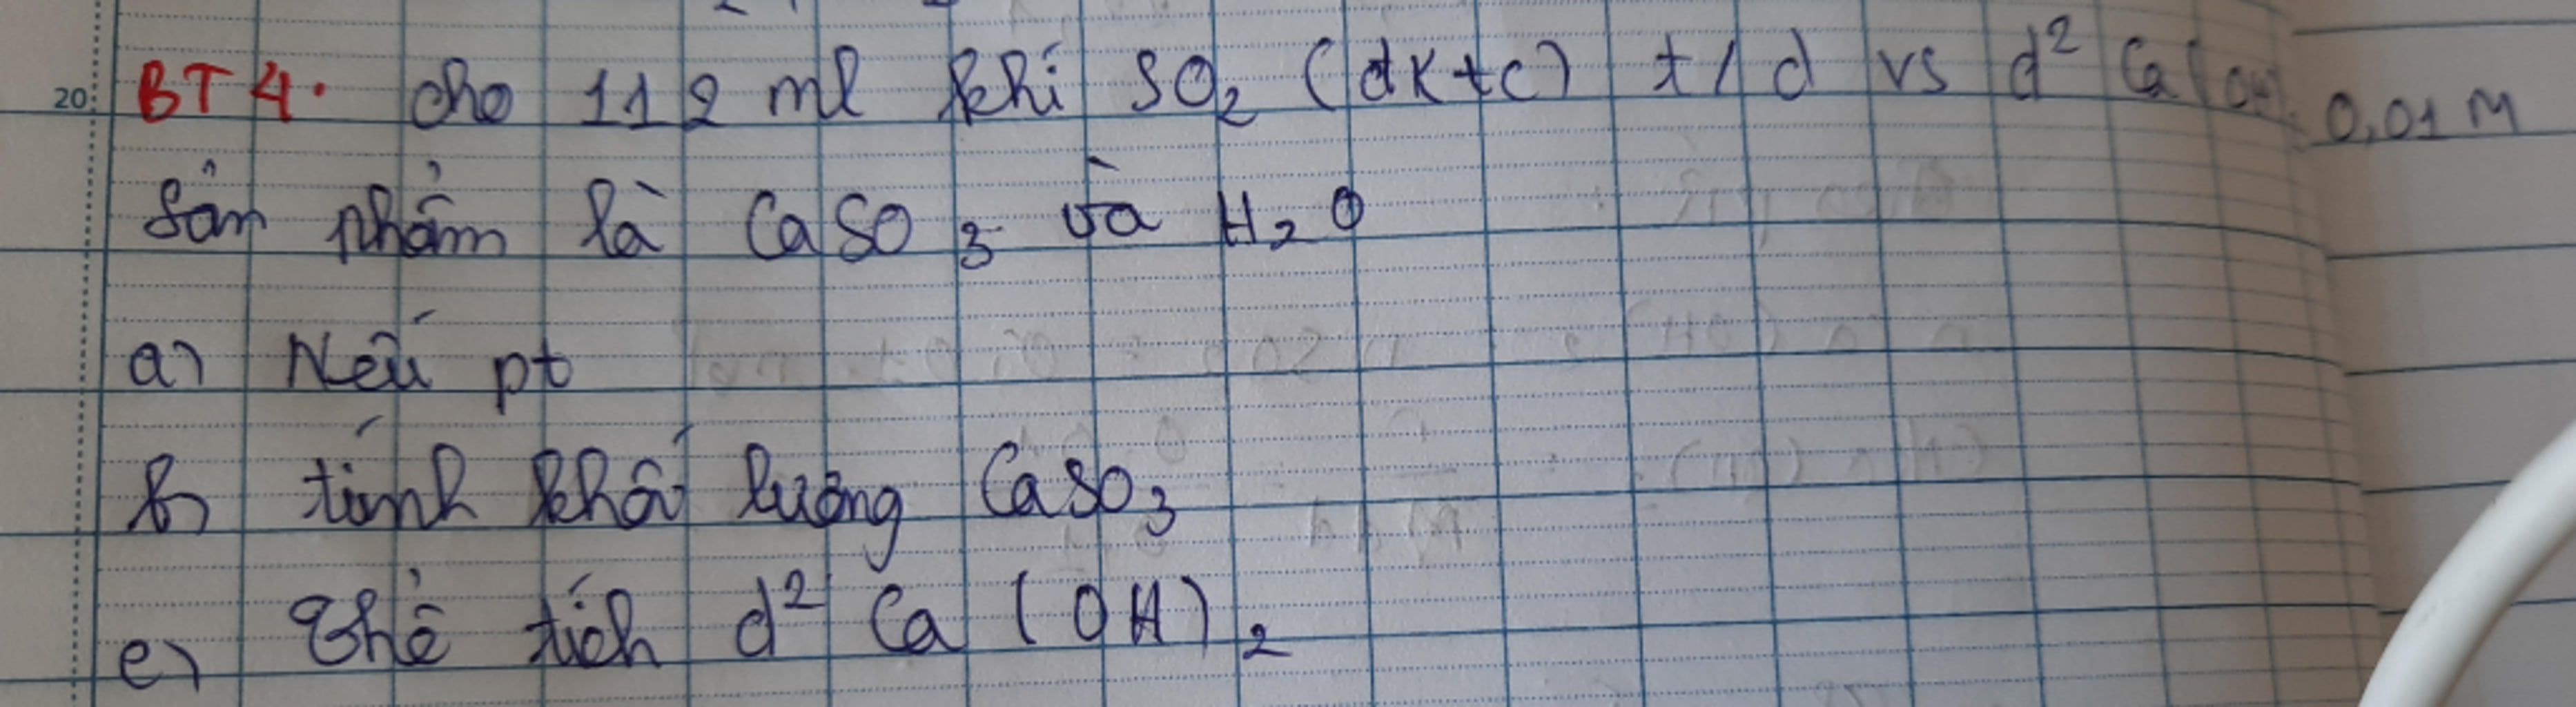 20
BT 4. Cho 112 ml khí SO₂ (đktc) t/d vs d² Ca(OH)₂ 0,01 M
Sản phẩm là CaSO₃ và H₂O
a) Nêú pt
b) tính khối lượng CaSO₃
c) Thể tích d² Ca(OH)₂